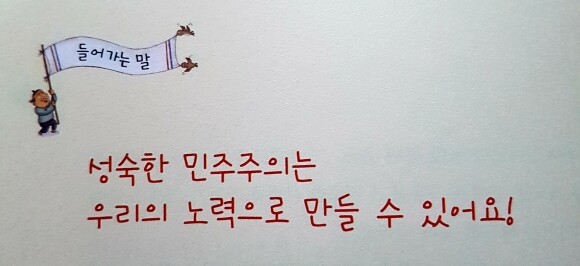 들어가는 말
성숙한 민주주의는
우리의 노력으로 만들 수 있어요!